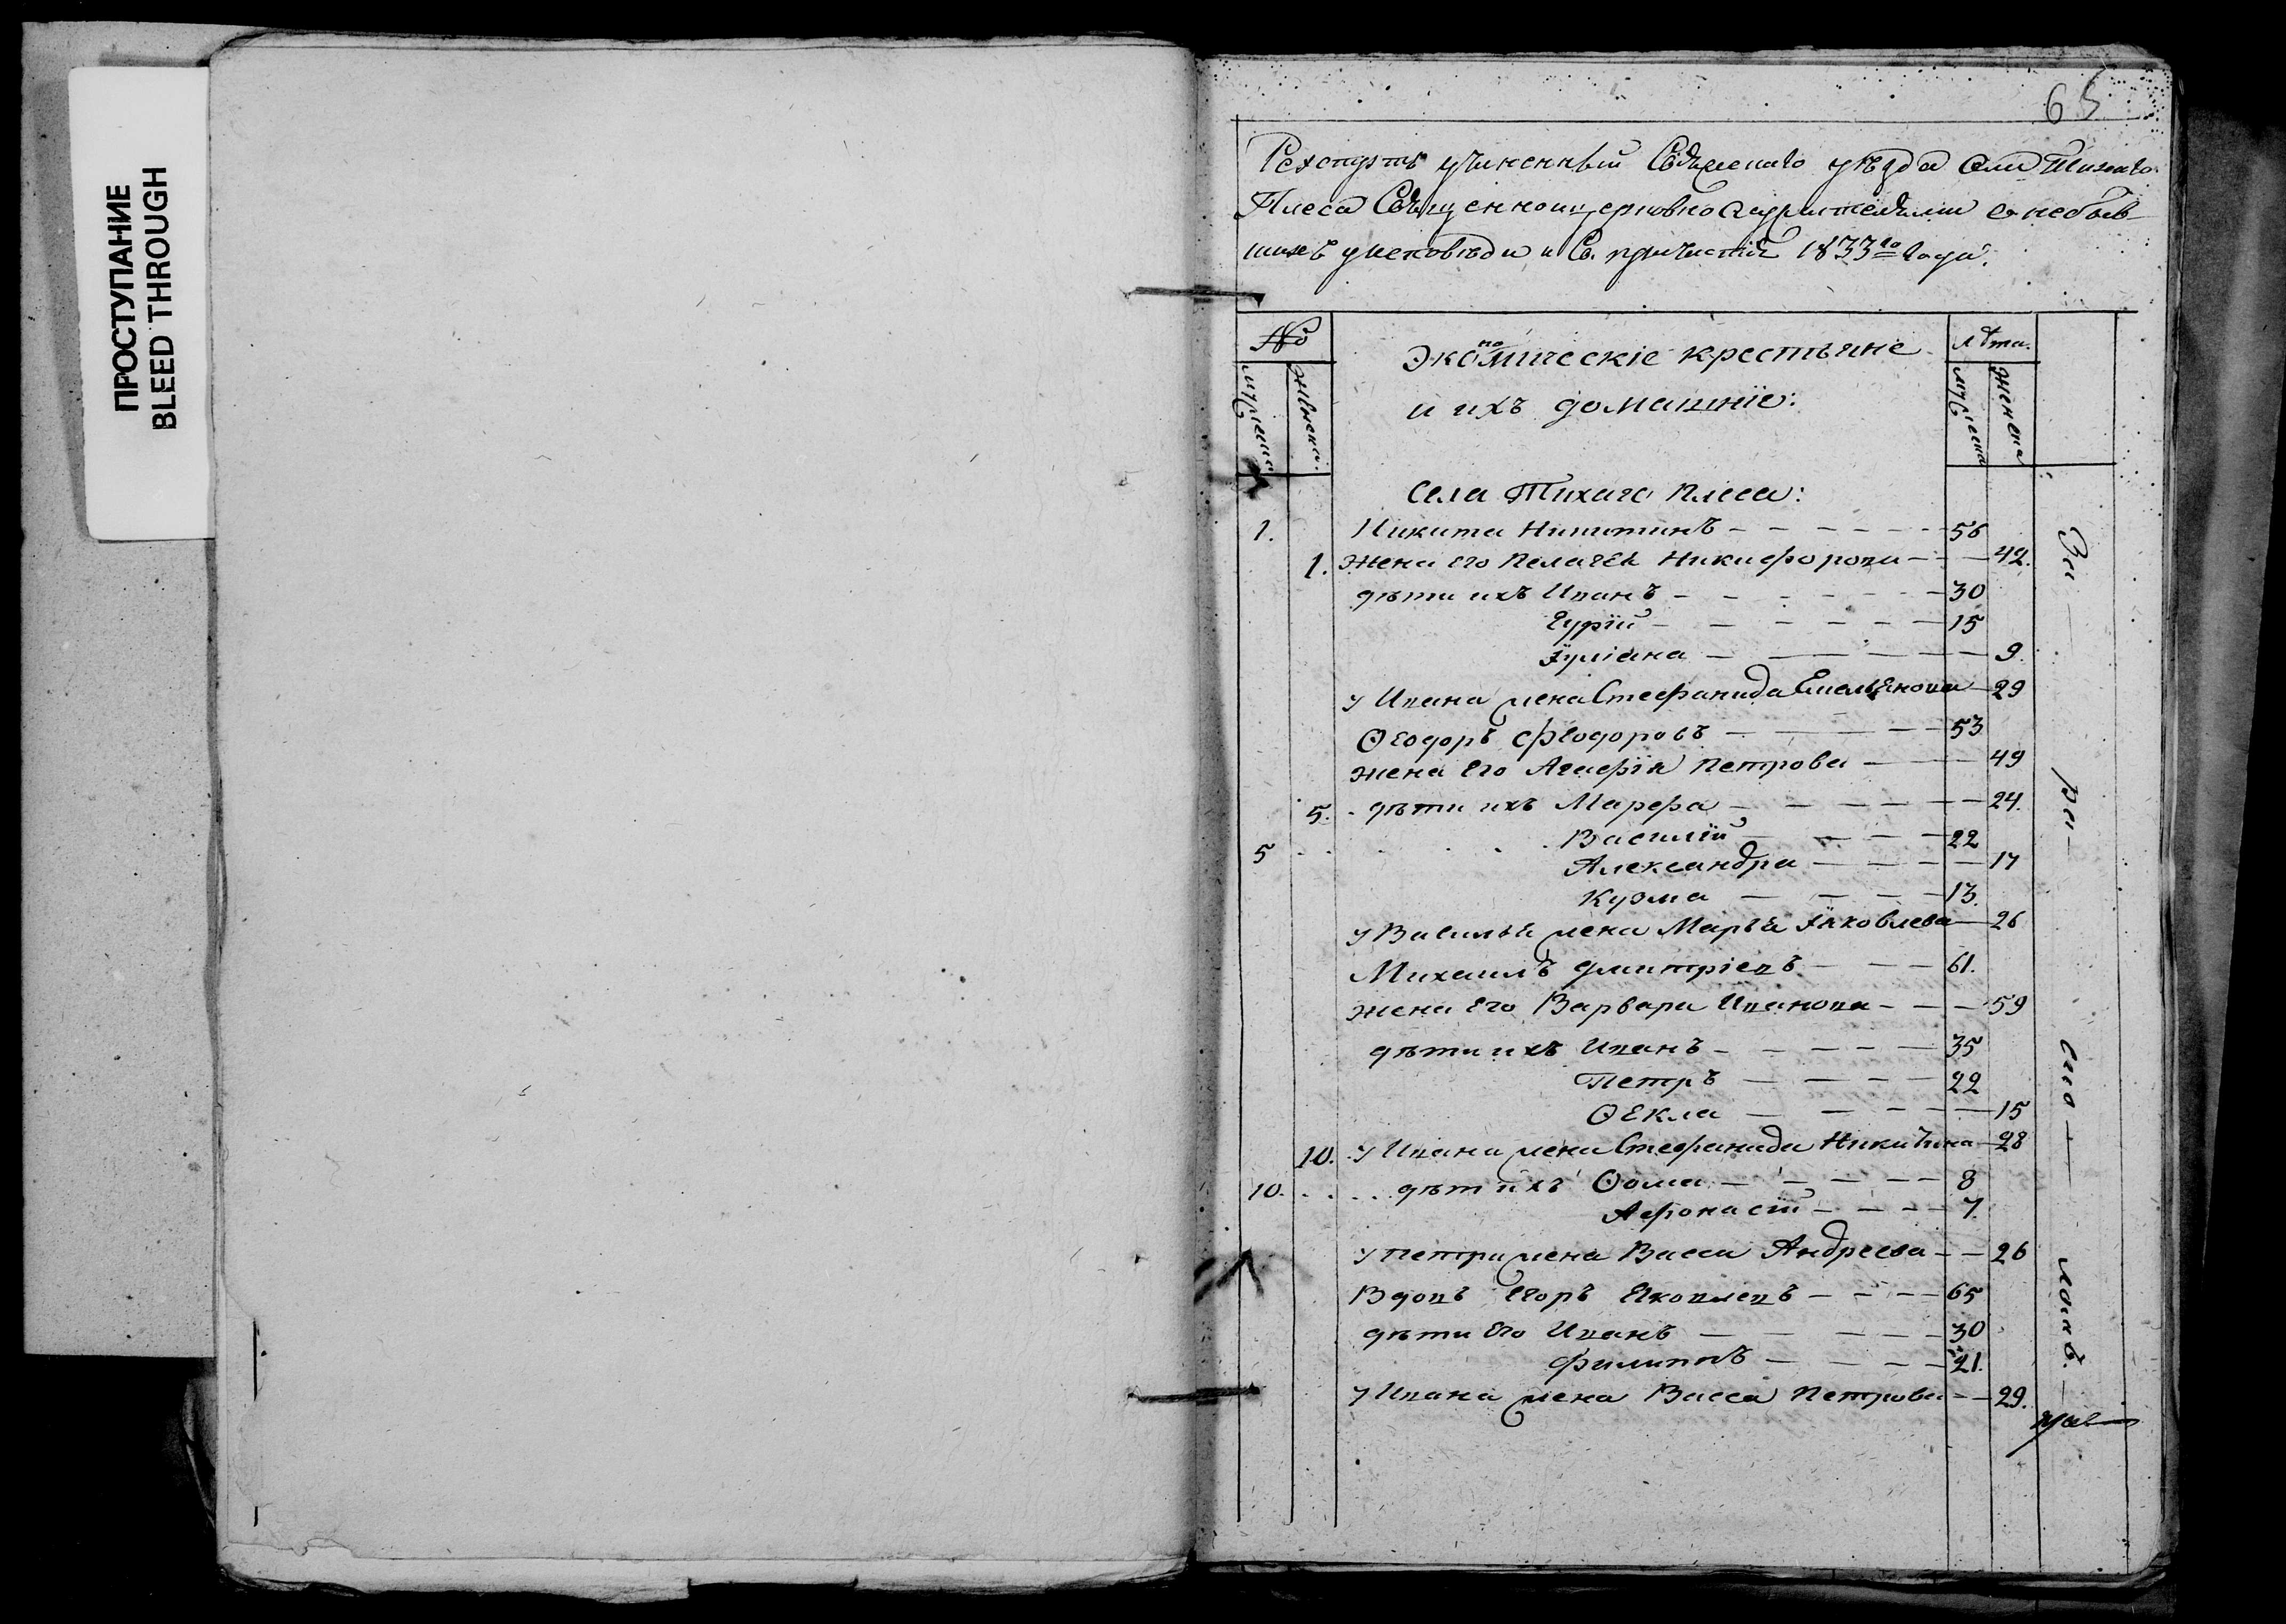 ПРОСТУПАНИЕ
BLEED THROUGH
65
учиненный Свіяжскаго уѣзда села Тихаго
Плеса Священноцерковнослужителями о небыв
шихъ у исповѣди и Св. причастія 1833го года.
№
мужеска
женска.
Экономическіе крестьяне
и ихъ домашніе:
лѣта.
мужеска
женска
Села Тихаго Плеса:
1. Никита Никитинъ — 56
1. жена его Пелагея Никифорова — 42.
дѣти ихъ Иванъ — 30
Гурій — 15
Іуліана — 9.
у Ивана жена Стефанида Емельянова — 29
Ѳеодоръ Ѳеодоровъ — 53
жена Его Агафія Петрова — 49
5. дѣти ихъ Марфа — 24.
5 Василій — 22
Александра — 17
Кузма — 13.
у Василья жена Марья Іяковлева — 26
Михаилъ Дмитріевъ — 61.
жена Его Варвара Иванова — 59
дѣти ихъ Иванъ — 35
Петръ — 22
Ѳекла — 15
10. у Ивана жена Стефанида Никитина — 28
10. дѣт ихъ Ѳома — 8
Афонасій — 7.
у Петра жена Васса Андреева — 26
Вдовъ Егоръ Яковлевъ — 65
дѣти Его Иванъ — 30
Филиппъ — 21.
у Ивана жена Васса Петрова — 29.
За — ра — сло —